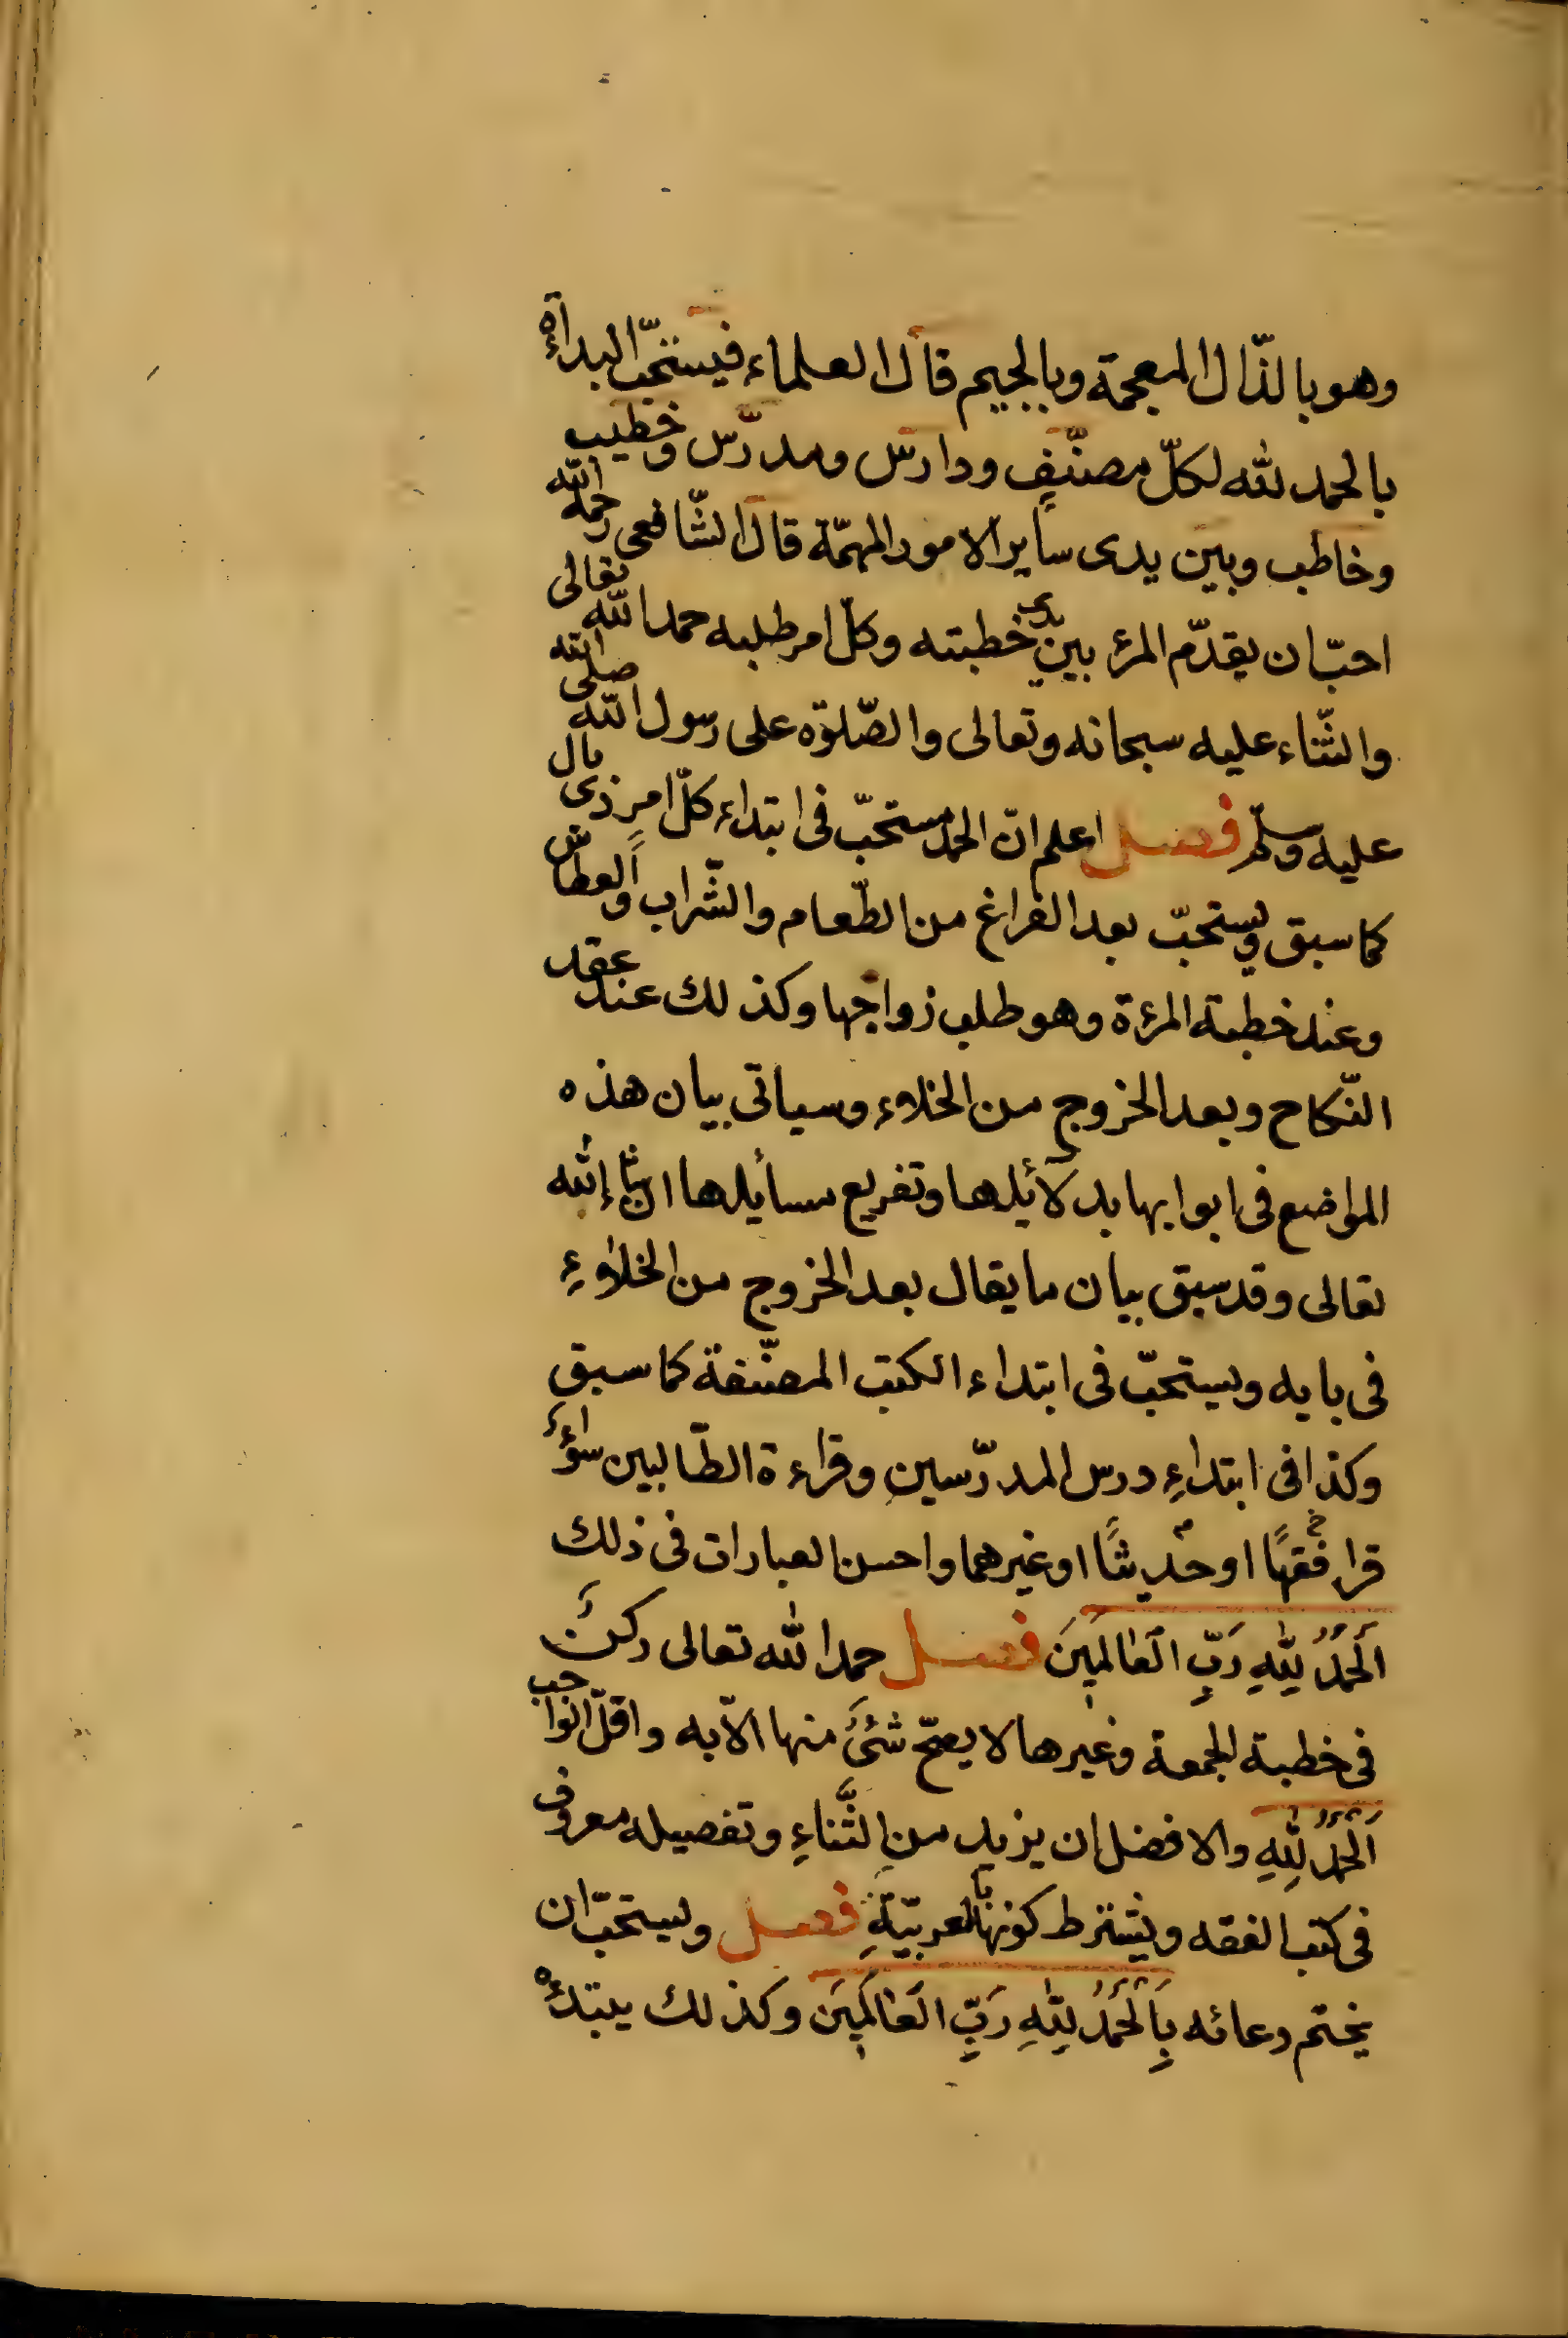 وهو بالذّال المعجمة وبالجيم قال العلماء فيستحبّ البداءة
بالحمد لله لكلّ مصنّفٍ ودارس ومدرّس وخطيب
وخاطب وبين يدى سأير الامور المهمّة قال الشّافعى رحمه الله
احبّ ان يقدّم المرء بين يدى خطبته وكلّ امر طلبه حمد الله تعالى
والثّناء عليه سبحانه وتعالى والصّلوة على رسول الله صلى الله
عليه وسلم فصل اعلم انّ الحمد مستحبّ فى ابتداء كلّ امرٍ ذى بال
كما سبق ويستحبّ بعد الفراغ من الطّعام والشّراب والعطاس
وعند خطبة المرءة وهو طلب زواجها وكذلك عند عقد
النّكاح وبعد الخروج من الخلاء وسياتى بيان هذه
المواضع فى ابوابها بدلائلها وتفريع مسائلها ان شاء الله
تعالى وقد سبق بيان ما يقال بعد الخروج من الخلاءِ
فى بابه ويستحبّ فى ابتداء الكتب المصنّفة كما سبق
وكذا فى ابتداءِ درس المدرّسين وقراءة الطّالبين سواءً
قرا فقهًا او حديثًا او غيرهما واحسن العبارات فى ذلك
اَلْحَمْدُ لِلّٰهِ رَبِّ الْعَالَمِينَ فصل حمد الله تعالى ركنٌ
فى خطبة الجمعة وغيرها لا يصحّ شئٌ منها الّا به واقلّ الواجب
اَلْحَمْدُ لِلّٰهِ والافضل ان يزيد من الثَّناءِ وتفصيله معروف
فى كتب الفقه ويشترط كونها بالعربيّةِ فصل ويستحبّ ان
يختم دعائه بِاَلْحَمْدُ لِلّٰهِ رَبِّ الْعَالَمِينَ وكذلك يبتدئه